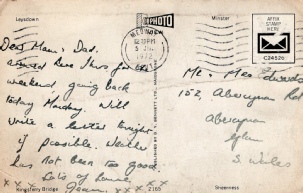 Leysdown
Minster
PHOTO
AFFIX
STAMP
HERE
C24526
12.30 PM
5 JNE
1972
Dear Mam & Dad.
arrived here Thurs for the
weekend, going back
today Monday. Will
write a letter tonight
if possible. Weather
has not been too good.
Lots of Love
x x x
Mr & Mrs Edwards
152, Abercynon Rd
Abercynon
Glam
S. Wales
Kingsferry Bridge
2165
Sheerness